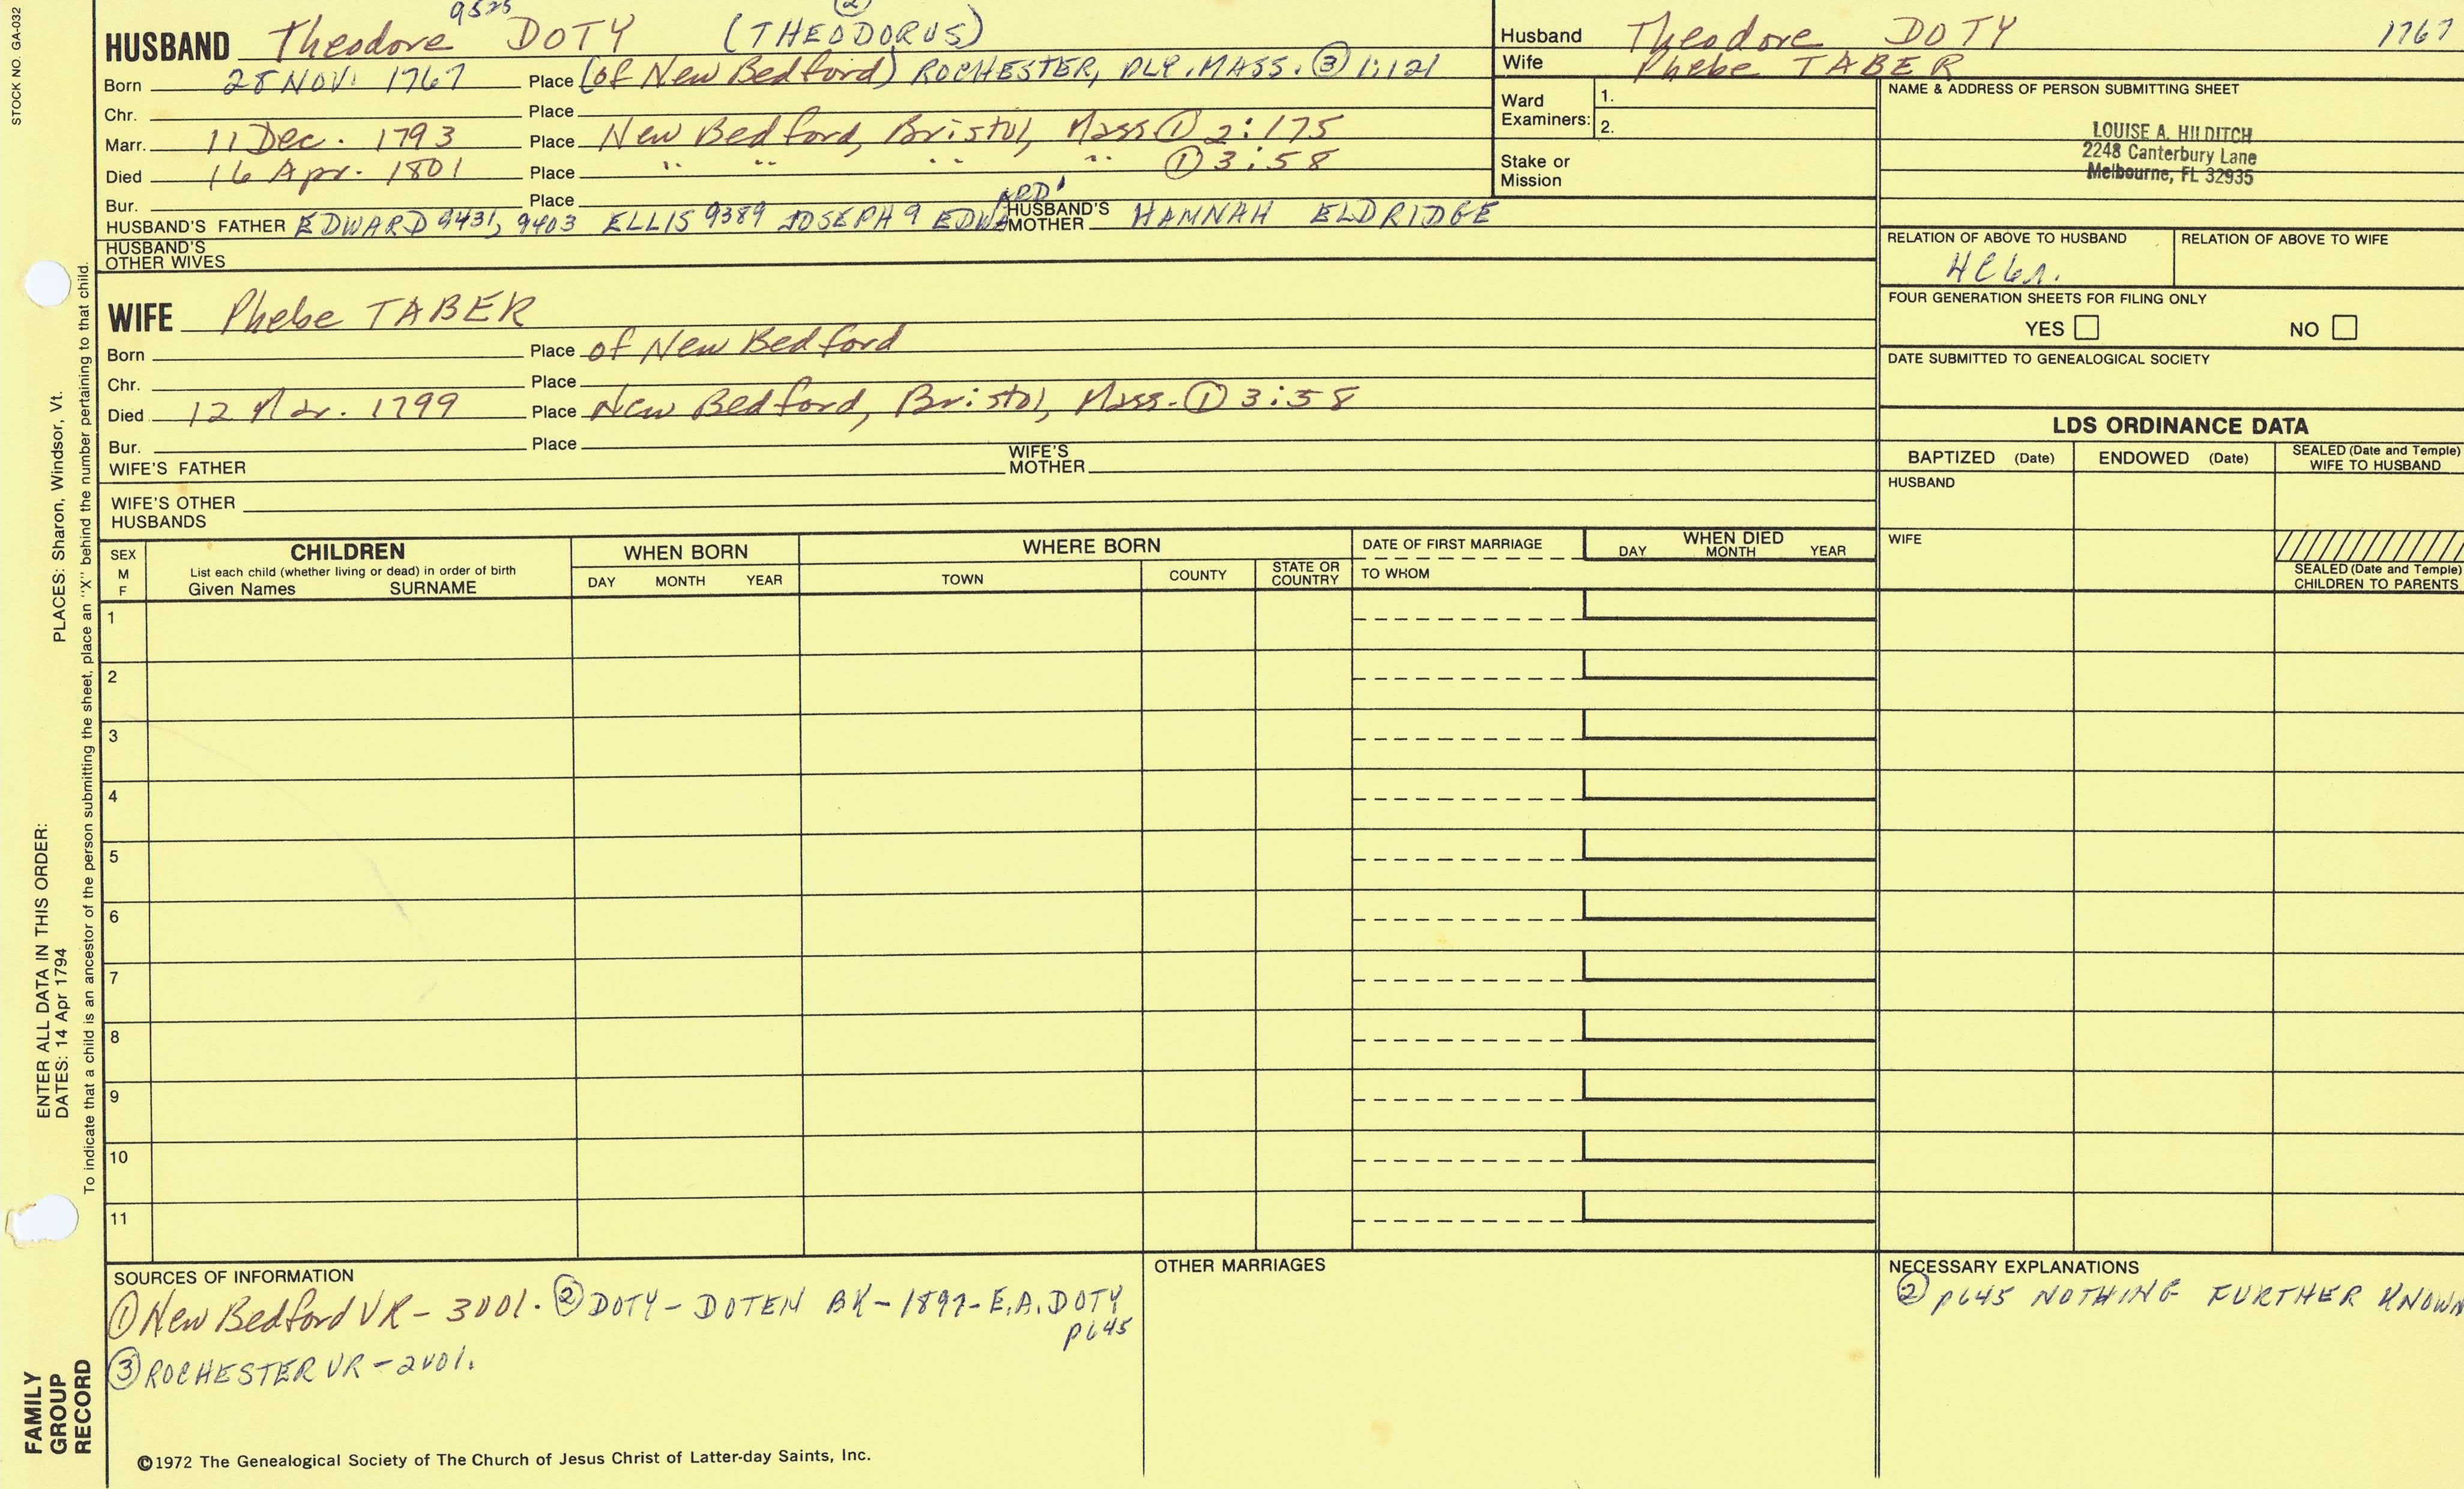 STOCK NO. GA-032
9525 (2)
HUSBAND Theodore DOTY (THEODORUS)
Born 28 NOV. 1767 Place (of New Bedford) ROCHESTER, PLY. MASS. ③ 1:121
Chr. Place
Marr. 11 Dec. 1793 Place New Bedford, Bristol, Mass ① 2:175
Died 16 Apr. 1801 Place " " " " ① 3:58
Bur. Place
HUSBAND'S FATHER EDWARD 9431, 9403 ELLIS 9389 JOSEPH 9 EDWARD' HUSBAND'S MOTHER HANNAH ELDRIDGE
HUSBAND'S
OTHER WIVES
WIFE Phebe TABER
Born Place of New Bedford
Chr. Place
Died 12 Mar. 1799 Place New Bedford, Bristol, Mass. ① 3:58
Bur. Place
WIFE'S FATHER WIFE'S MOTHER
WIFE'S OTHER
HUSBANDS
Husband Theodore DOTY 1767
Wife Phebe TABER
Ward
Examiners: 1.
2.
Stake or
Mission
NAME & ADDRESS OF PERSON SUBMITTING SHEET
LOUISE A. HILDITCH
2248 Canterbury Lane
Melbourne, FL 32935
RELATION OF ABOVE TO HUSBAND RELATION OF ABOVE TO WIFE
FOUR GENERATION SHEETS FOR FILING ONLY
YES NO
DATE SUBMITTED TO GENEALOGICAL SOCIETY
LDS ORDINANCE DATA
BAPTIZED (Date) ENDOWED (Date) SEALED (Date and Temple)
WIFE TO HUSBAND
HUSBAND
WIFE
SEALED (Date and Temple)
CHILDREN TO PARENTS
SEX
M
F
CHILDREN
List each child (whether living or dead) in order of birth
Given Names SURNAME
WHEN BORN
DAY MONTH YEAR
WHERE BORN
TOWN COUNTY STATE OR
COUNTRY
DATE OF FIRST MARRIAGE
TO WHOM
WHEN DIED
DAY MONTH YEAR
1
2
3
4
5
6
7
8
9
10
11
SOURCES OF INFORMATION
① New Bedford VR - 3vol. ② DOTY - DOTEN BK - 1897 - E.A. DOTY
p645
③ ROCHESTER VR - 2vol.
OTHER MARRIAGES
NECESSARY EXPLANATIONS
② p645 NOTHING FURTHER KNOWN
©1972 The Genealogical Society of The Church of Jesus Christ of Latter-day Saints, Inc.
ENTER ALL DATA IN THIS ORDER:
DATES: 14 Apr 1794 PLACES: Sharon, Windsor, Vt.
To indicate that a child is an ancestor of the person submitting the sheet, place an "X" behind the number pertaining to that child.
FAMILY
GROUP
RECORD